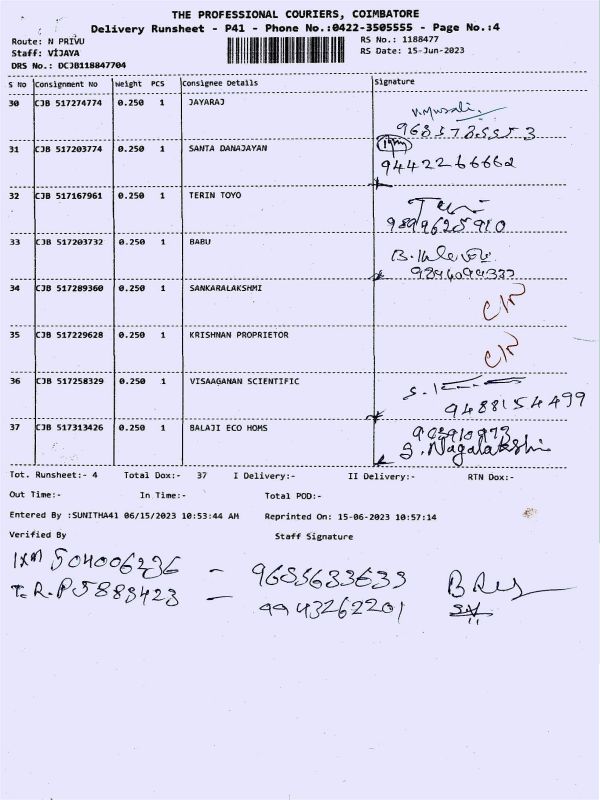 THE PROFESSIONAL COURIERS, COIMBATORE
Delivery Runsheet - P41 - Phone No.:0422-3505555 - Page No.:4
Route: N PRIVU RS No.: 1188477
Staff: VIJAYA RS Date: 15-Jun-2023
DRS No.: DCJB118847704
S No Consignment No Weight PCS Consignee Details Signature
30 CJB 517274774 0.250 1 JAYARAJ
31 CJB 517203774 0.250 1 SANTA DANAJAYAN
9442266662
32 CJB 517167961 0.250 1 TERIN TOYO
9899625910
33 CJB 517203732 0.250 1 BABU
34 CJB 517289360 0.250 1 SANKARALAKSHMI
35 CJB 517229628 0.250 1 KRISHNAN PROPRIETOR
36 CJB 517258329 0.250 1 VISAAGANAN SCIENTIFIC
9488154499
37 CJB 517313426 0.250 1 BALAJI ECO HOMS
S. Nagalakshi
Tot. Runsheet:- 4 Total Dox:- 37 I Delivery:- II Delivery:- RTN Dox:-
Out Time:- In Time:- Total POD:-
Entered By :SUNITHA41 06/15/2023 10:53:44 AM Reprinted On: 15-06-2023 10:57:14
Verified By Staff Signature
504006236 - 9685633633
5883423 - 9943262201